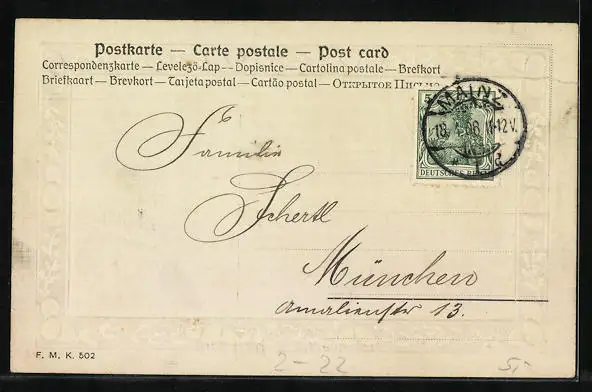 Postkarte — Carte postale — Post card
Correspondenzkarte — Levelező-Lap — Dopisnice — Cartolina postale — Brefkort
Briefkaart — Brevkort — Tarjeta postal — Cartão postal — Открытое Письмо
MAINZ
18. 06. 11-12 V.
5
DEUTSCHES REICH
Familie
Schertl
München
Amalienstr 13.
F. M. K. 502
2-22
5,-